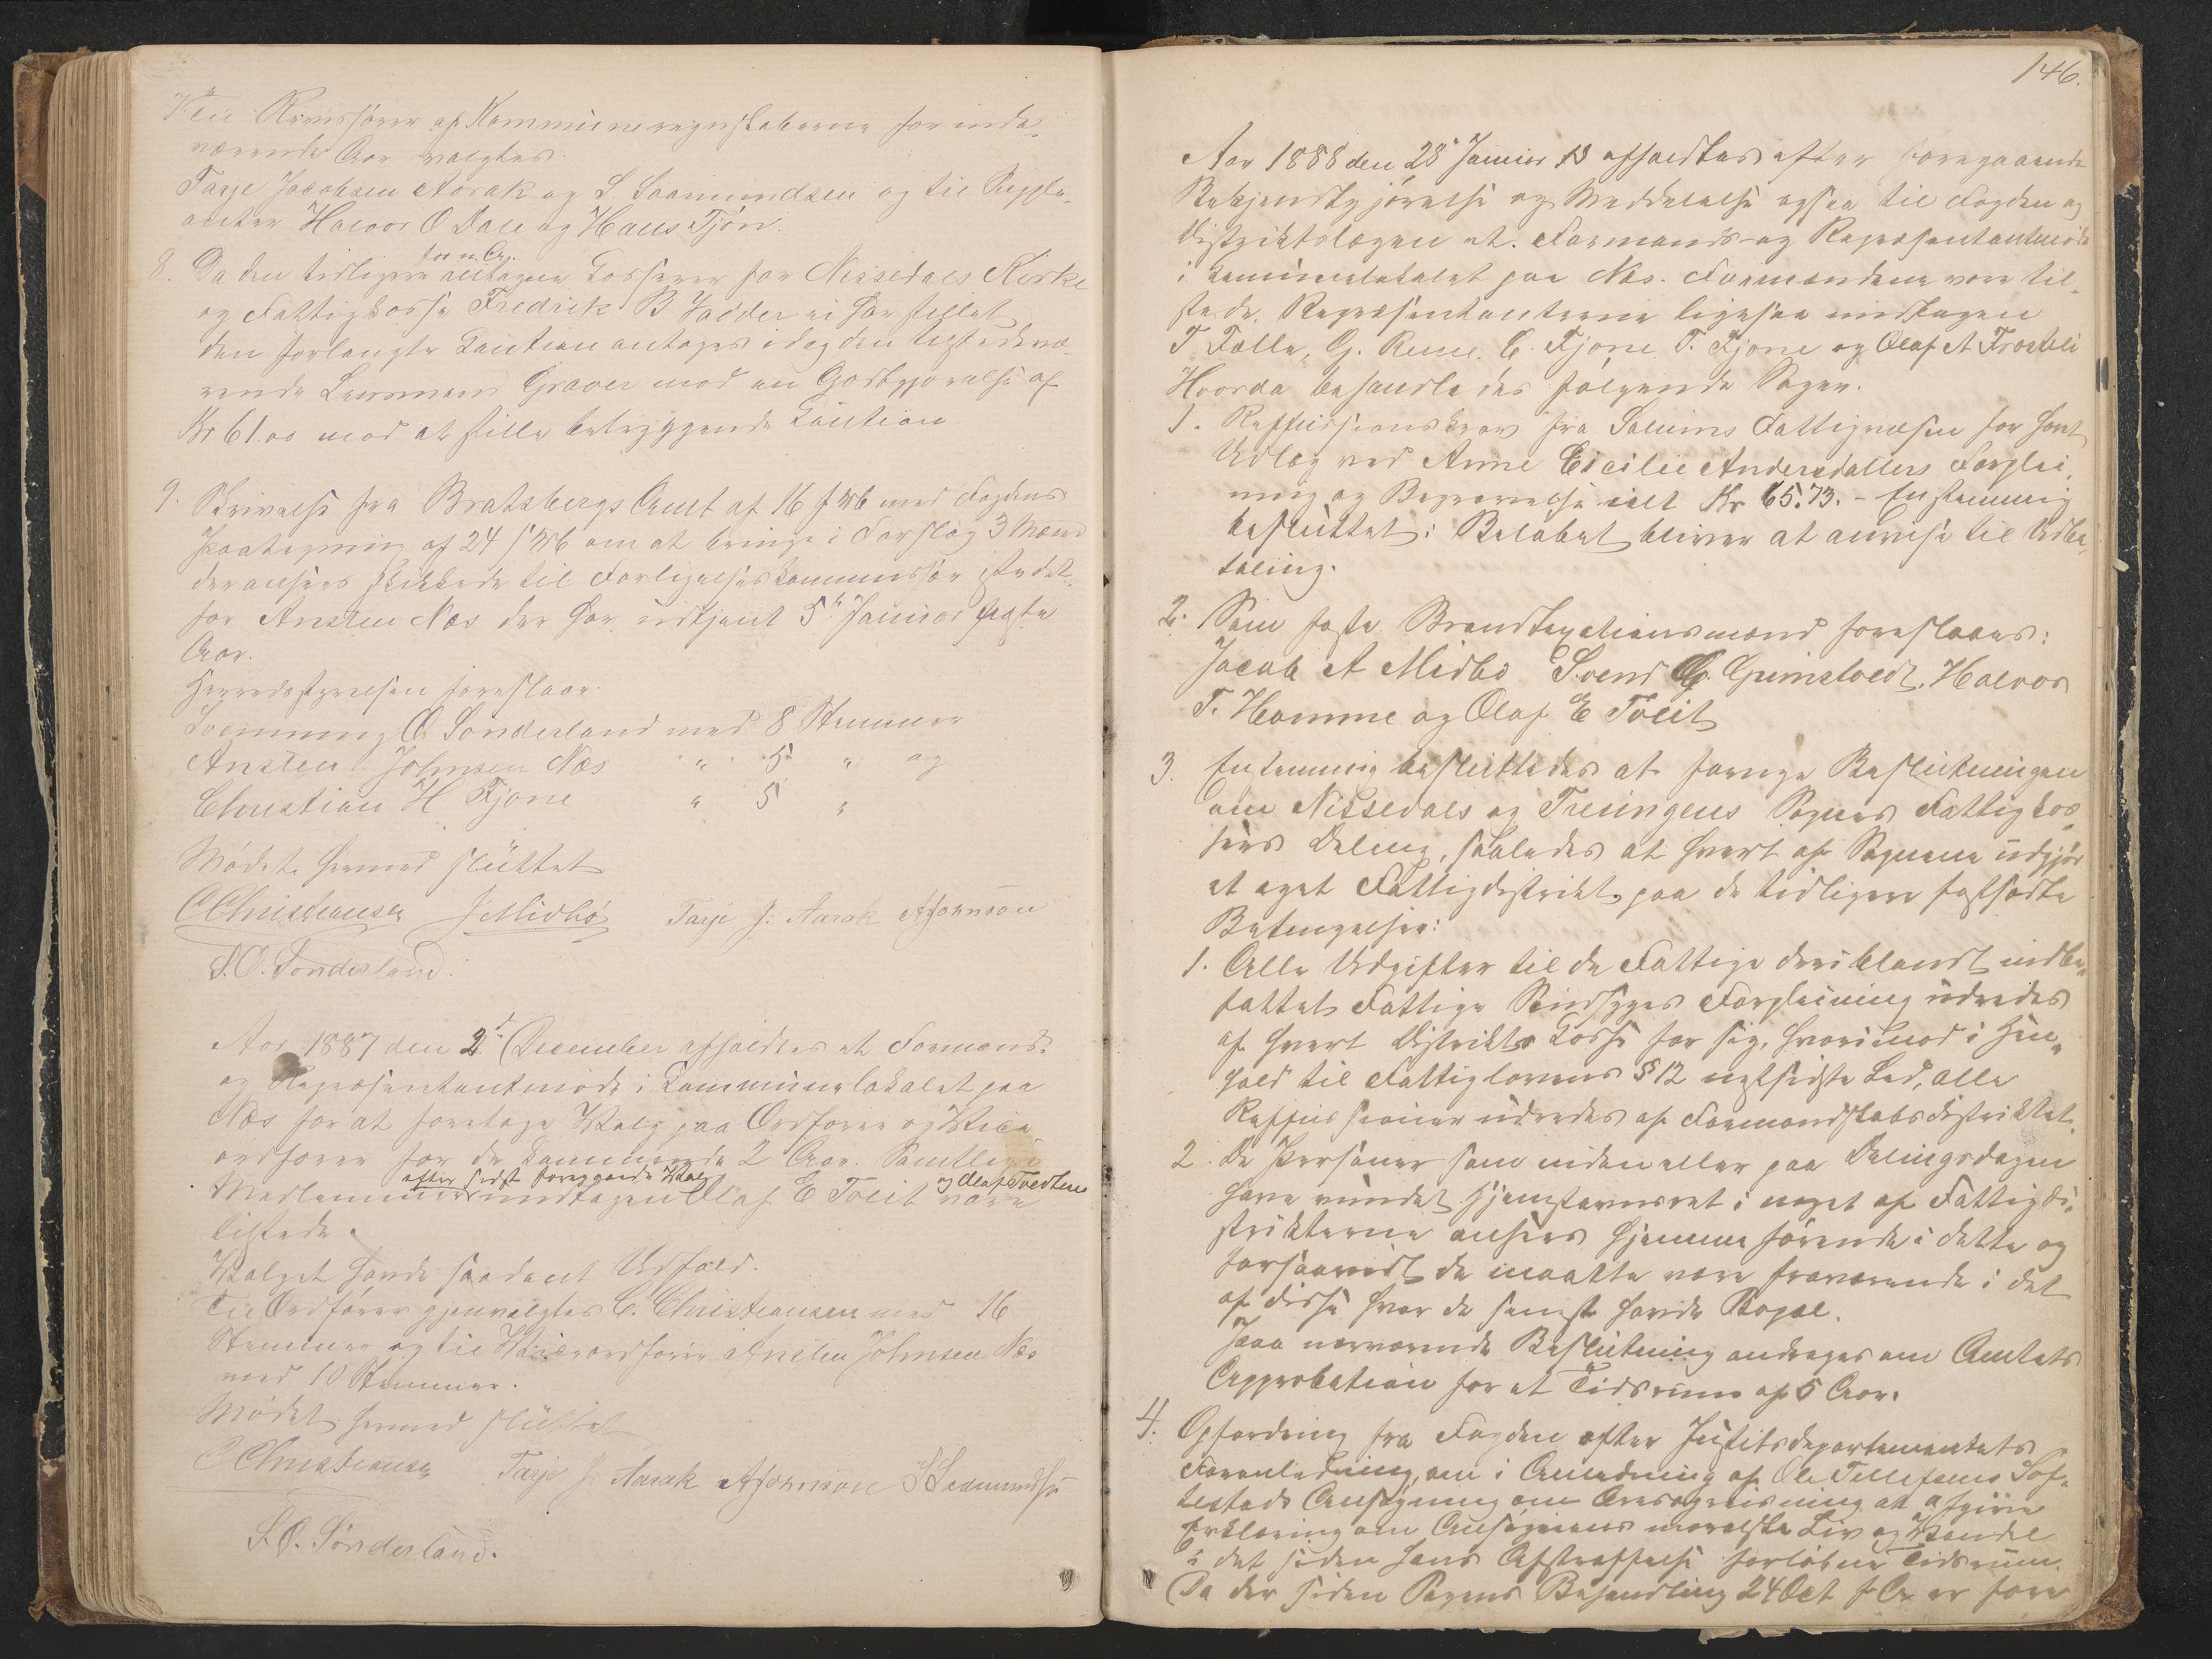 Til Revisorer af Kommuneregnskaberne for inde-
værende Aar valgtes.
Tarje Jacobsen Aarak og S Saamundsen og til Supple-
anter Halvor O Dale og Hans Tjøn.
8. Da den tidligere antagne Kasserer for Nissedals Kirke
og Fattigkasse Fredrik B Halder ei har stillet
den forlangte Kaution antages idag den tilstedevæ-
rende Lensmand Graver mod en Godtgjørelse af
Kr 61.00 mod at stille betryggende Kaution
9. Skrivelse fra Bratsbergs Amt af 16 f M med Fogdens
Paategning af 24 s M om at bringe i Forslag 3 Mænd
der ansees skikkede til Forligelseskommissær istedet-
for Ansten Næs der har udtjent 5te Januar næste
Aar.
Herredsstyrelsen foreslaar.
Svenning O. Sønderland med 8 Stemmer
Ansten Johnsen Næs " 5 " og
Christian H Fjone " 5 "
Mødet hermed sluttet
C Christiansen J Midbø Tarje J. Aarak A Johnson
S. O. Sønderland.
Aar 1887 den 2den December afholdtes et Formands-
og Repræsentantmøde i Kommunelokalet paa
Næs for at foretage Valg paa Ordfører og Vice
ordfører for de kommende 2 Aar. Samtlige
efter sidst foregaaende Valg
Medlemmer undtagen Olaf E Tveit og Olaf Tvedten vare
tilstede.
Valget havde saadant Udfald.
Til Ordfører gjenvalgtes C. Christiansen med 16
Stemmer og til Viceordfører Ansten Johnsen Næs
med 10 Stemmer.
Mødet hermed sluttet
C Christiansen Tarje J. Aarak A Johnson S Saamundsen
S. O. Sønderland.
146.
Aar 1888 den 28 Januar afholdtes efter foregaaende
Bekjendtgjørelse og Meddelelse ogsaa til Fogden og
Distriktslægen et Formands- og Repræsentantmøde
i Kommunelokalet paa Næs. Formændene vare til-
stede. Repræsentanterne ligesaa undtagen
T Felle, G. Rune. C. Fjone T. Fjone og Olaf A Frosteli
Hvorda behandledes følgende Sager.
1. Refusionskrav fra Solums Fattigvæsen for havt
Udlæg ved Anne Cicilie Andersdatters Forplei-
ning og Begravelse ialt Kr 65.73. - Enstemmig
besluttet: Beløbet bliver at anvise til Udbe-
taling.
2. Som faste Brandtaxationsmænd foreslaaes:
Jacob A Midbø Svend G. Grimstvedt, Halvor
T. Homme og Olaf E Tveit
3. Enstemmig besluttedes at forny Beslutningen
om Nissedals og Treungens Sognes Fattigkas-
ses Deling, saaledes at hvert af Sognene udgjør
et eget Fattigdistrikt paa de tidligere fastsatte
Betingelser:
1. Alle Udgifter til de Fattige deriblandt indbe-
fattet Fattige Sindsyges Forpleining udredes
af hvert Distrikts Kasse for sig, hvorimod i Hen-
hold til Fattiglovens § 12 næstsidste Led, alle
Refusioner udredes af Formandskabsdistriktet.
2. De Personer som inden eller paa Delingsdagen
have vundet Hjemstavnsret i noget af Fattigdi-
strikterne ansees hjemmehørende i dette og
forsaavidt de maatte være fraværende i det
af disse hvor de senest havde Bopæl.
Paa nærværende Beslutning andrages om Amtets
Approbation for et Tidsrum af 5 Aar.
4. Opfordring fra Fogden efter Justitsdepartementets
Foranledning, om i Anledning af Ole Tellefsens Sof-
testads Ansøgning om Æresopreisning at afgive
Erklæring om Ansøgerens moralske Liv og Vandel
i det siden hans Afstraffelse forløbne Tidsrum.
Da der siden Sagens Behandling 24 Oct f A er fore